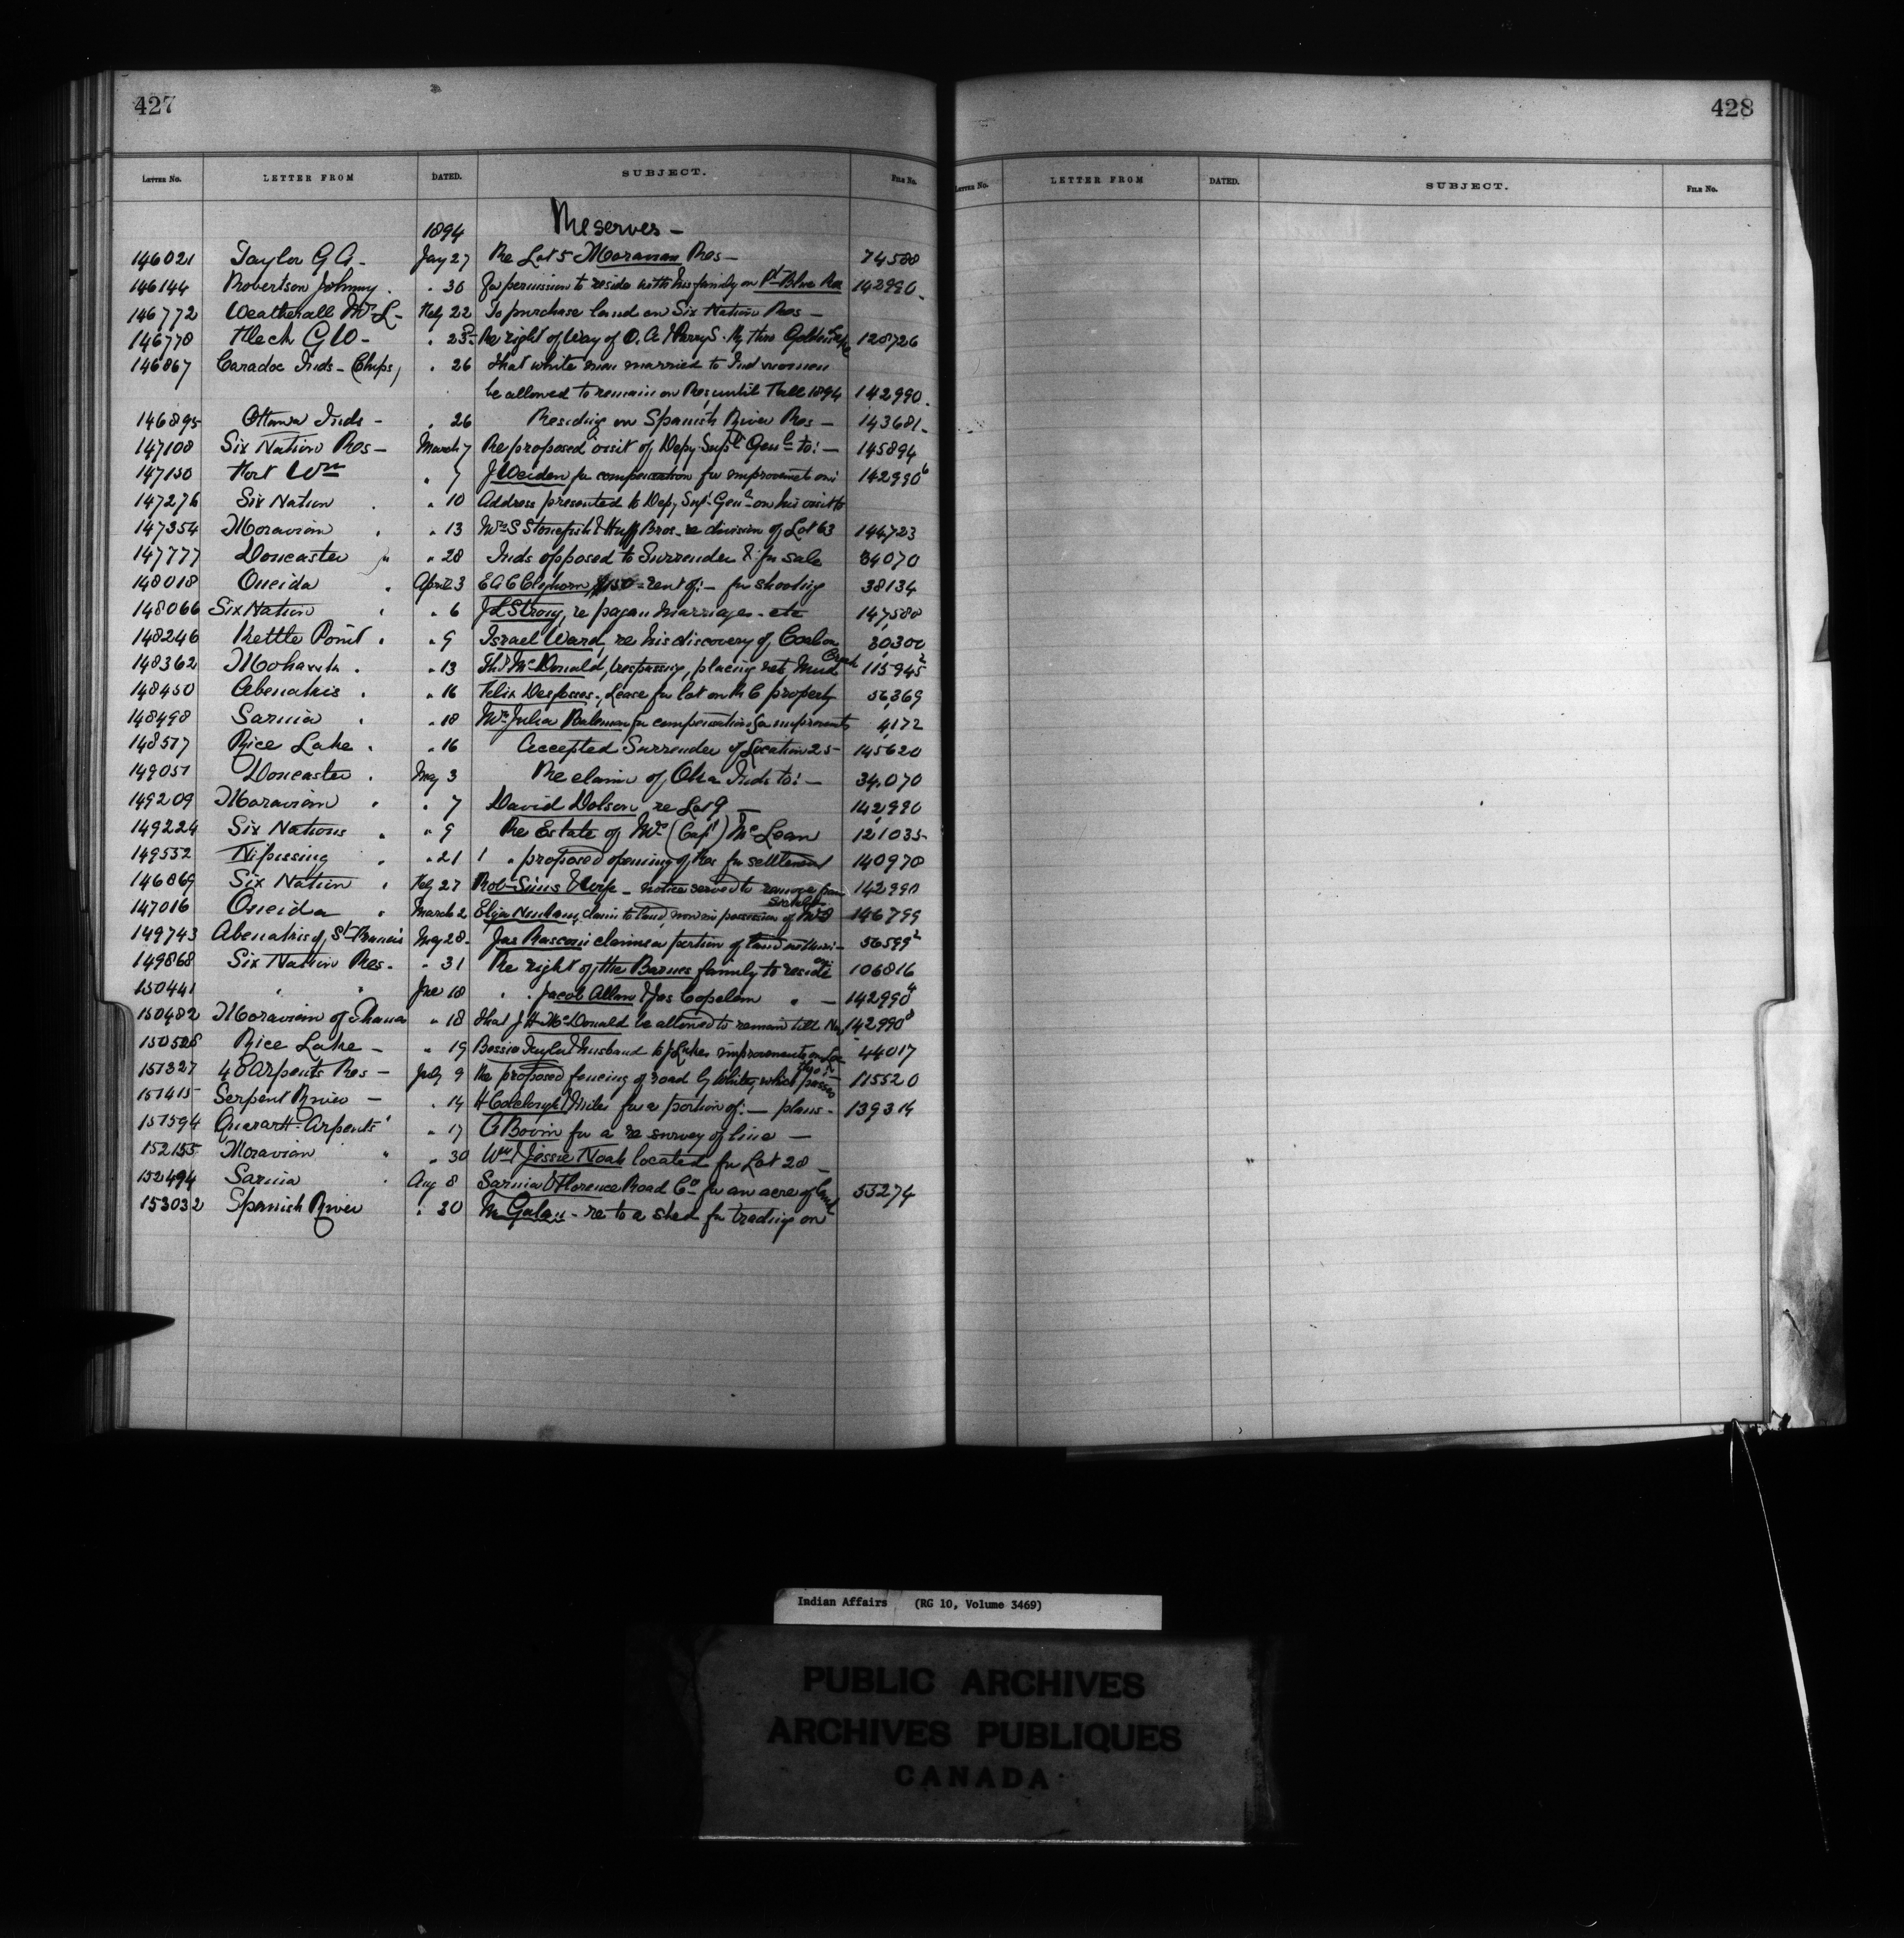 427
LETTER No. LETTER FROM DATED. SUBJECT. FILE No.
1894 Reserves –
146021 Taylor G A - Jay 27 Re Lot 5 Moravian Res – 74588
146144 Robertson Johnny . " 30 For permission to reside with his family on Pt Blue Res 142990
146772 Weatherall Mrs L - Feby 22 To purchase land on Six Nation Res –
146778 Fleck G W - " 23 Re right of Way of O. A & Parry S. Ry thro Golden Lake 128726
146867 Caradoc Inds - (Chips) " 26 that white men married to Ind women
be allowed to remain on Res until Fall 1894 142990
146895 Ottawa Inds - " 26 Residing on Spanish River Res – 143681
147108 Six Nation Res – March 7 Re proposed visit of Depy Supt Genl to: – 145894
147150 Fort Wm " 7 J Weiden for compensation for improvemts on: 142990 6
147276 Six Nation " 10 Address presented to Depy Supt Genl on his visit to
147354 Moravian " " 13 Mrs S Stonefish & Huff Bros - re division of Lot 63 144723
147777 Doncaster " " 28 Inds opposed to Surrender & for sale 34070
148018 Oneida " April 3 E A C Cleghorn, $150 = rent of: – for shooting 38134
148066 Six Nation " " 6 J L Strong, re pagan marriages - etc 147580
148246 Kettle Point " " 9 Israel Ward, re his discovery of Carbon 30,300
148362 Mohawk " " 13 Thos McDonald, trespassing, placing nets Mud Creek 115945 2
148450 Abenakis " " 16 Felix Desfosses. Lease for lot on R C property 56,369
148498 Sarnia " " 18 Mrs Julia Bateman for compensation for improvmts 4172
148517 Rice Lake " " 16 Accepted Surrender of Location 25 – 145620
149051 Doncaster " May 3 Re claim of Oka Inds to: – 34,070
149209 Moravian " " 7 David Dolson, re Lot 9 – 142,990
149224 Six Nations " " 9 Re Estate of Mrs (Capt) McLean 121035
149552 Nipissing " " 21 " " proposed opening of Res for settlement 140970
146869 Six Nation " Feby 27 Robt Sims & Wife - notice served to remove from 142990
147016 Oneida " March 2 Elija claim to land, now in possession of Mrs 146799
149743 Abenakis of St Francis May 28 Jas Rasconi claims a portion of land 56599 2
149868 Six Nation Res - " 31 Re right of the Barnes family to reside on: 106816
150441 " " Jne 18 " " Jacob Allan & Jas Copelam " – 142990 4
150482 Moravian of Thames " 18 that J H McDonald be allowed to remain till Nov 142990 8
150508 Rice Lake - " 19 Bessie Taylor & husband to J Lukes improvements on Loc 44017
151327 40 Arpents Res – July 9 Re proposed fencing of road by Whites, which passes thro: – 115520
151415 Serpent River – " 14 H & Niles for a portion of: – plans - 139314
151594 Quarart-Arpents " " 17 A Bovin for a re survey of line –
152155 Moravian " " 30 Wm & Jessie Noah located for Lot 28 –
152494 Sarnia " Aug 8 Sarnia & Florence Road Co for an acre of land 53274
153032 Spanish River " 20 re to a shed for trading on
428
LETTER No. LETTER FROM DATED. SUBJECT. FILE No.
Indian Affairs (RG 10, Volume 3469)
PUBLIC ARCHIVES
ARCHIVES PUBLIQUES
CANADA